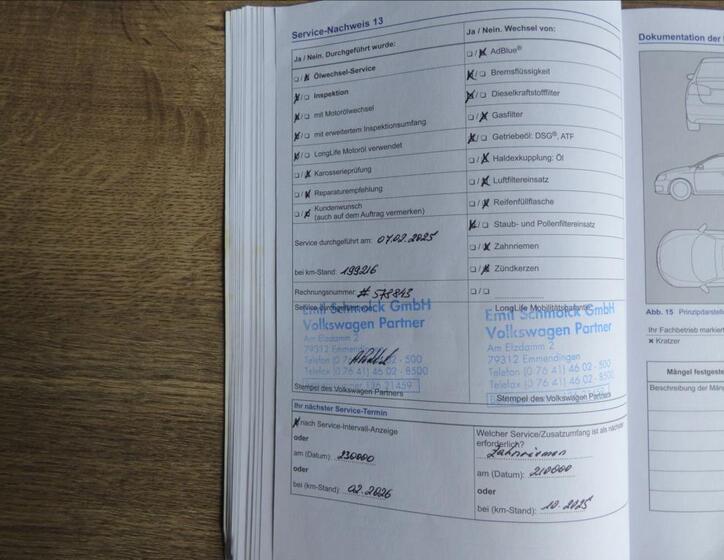 Service-Nachweis 13
Ja / Nein. Durchgeführt wurde:
Ölwechsel-Service
Inspektion
mit Motorölwechsel
mit erweitertem Inspektionsumfang
LongLife Motoröl verwendet
Karosserieprüfung
Reparaturempfehlung
Kundenwunsch
(auch auf dem Auftrag vermerken)
Service durchgeführt am: 07.02.2025
bei km-Stand: 199216
Rechnungsnummer: # 573843
Emil Schmolck GmbH
Volkswagen Partner
Am Elzdamm 2
79312 Emmendingen
Telefon (0 76 41) 46 02 - 500
Telefax (0 76 41) 46 02 - 8500
Stempel des Volkswagen Partners
Ja / Nein. Wechsel von:
AdBlue®
Bremsflüssigkeit
Dieselkraftstofffilter
Gasfilter
Getriebeöl: DSG®, ATF
Haldexkupplung: Öl
Luftfiltereinsatz
Reifenfüllflasche
Staub- und Pollenfiltereinsatz
Zahnriemen
Zündkerzen
LongLife Mobilitätsgarantie
Emil Schmolck GmbH
Volkswagen Partner
Am Elzdamm 2
79312 Emmendingen
Telefon (0 76 41) 46 02 - 500
Telefax (0 76 41) 46 02 - 8500
Stempel des Volkswagen Partners
Ihr nächster Service-Termin
nach Service-Intervall-Anzeige
oder
am (Datum): 230000
oder
bei (km-Stand): 02.2026
Welcher Service/Zusatzumfang ist als nächster
erforderlich?
Zahnriemen
am (Datum): 210000
oder
bei (km-Stand): 10.2025
Dokumentation der
Abb. 15 Prinzipdarstell
Ihr Fachbetrieb markiert
x Kratzer
Mängel festgeste
Beschreibung der Män